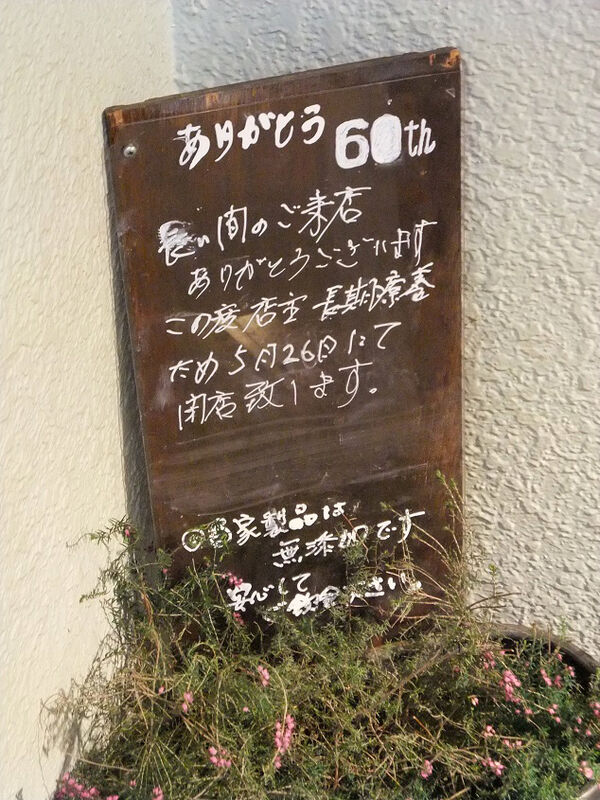 ありがとう 60th
長い間のご来店
ありがとうございます
この度店主 長期療養
ため5月26日にて
閉店致します。
野家製品は
無添加です
安心して
ご飲食ください。